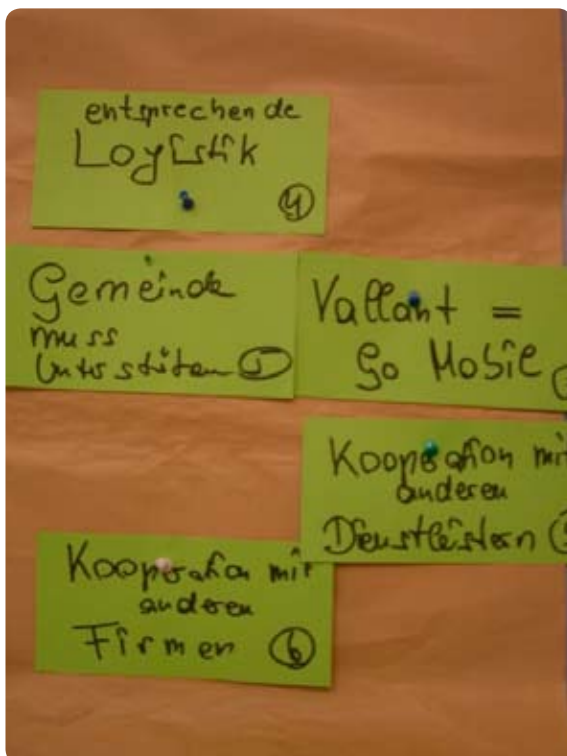 entsprechende
Logistik
4
Gemeinde
muss
5
Vallant =
Go Mobil
Kooperation mit
anderen
Dienstleistern
Kooperation mit
anderen
Firmen 6